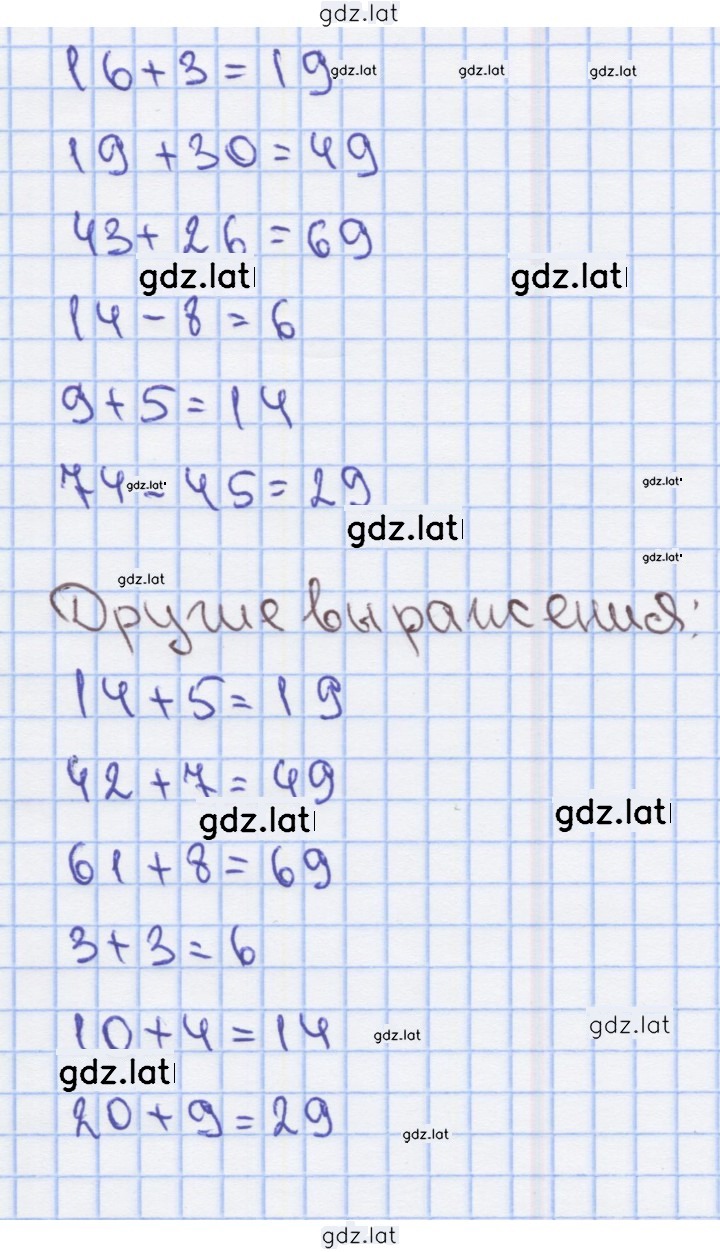 gdz.lat
16+3=19 gdz.lat gdz.lat gdz.lat
19+30=49
43+26=69
gdz.lat gdz.lat
14-8=6
9+5=14
74-45=29 gdz.lat gdz.lat
gdz.lat
gdz.lat
gdz.lat
Другие выражения:
14+5=19
42+7=49
gdz.lat gdz.lat
61+8=69
3+3=6
10+4=14 gdz.lat gdz.lat
gdz.lat
20+9=29 gdz.lat
gdz.lat